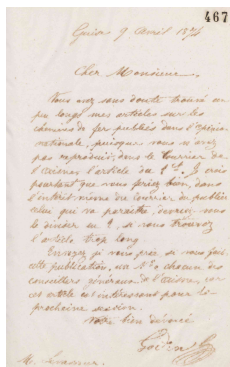 467
Guise 9 Avril 1874
Cher Monsieur,
Vous avez sans doute trouvé un
peu longs mes articles sur les
chemins de fer publiés dans l'opinion
nationale, puisque vous n'avez
pas reproduit dans le Courrier de
l'Aisne l'article du 1er. Je crois
pourtant que vous feriez bien, dans
l'intérêt même du Courrier de publier
celui qui va paraître,
le diviser en 2, si vous trouvez
l'article trop long.
Envoyez je vous prie, si vous faites
cette publication, un No à chacun des
conseillers généraux de l'Aisne, car
cet article est intéressant pour la
prochaine session.
Votre bien dévoué
Godin
M.